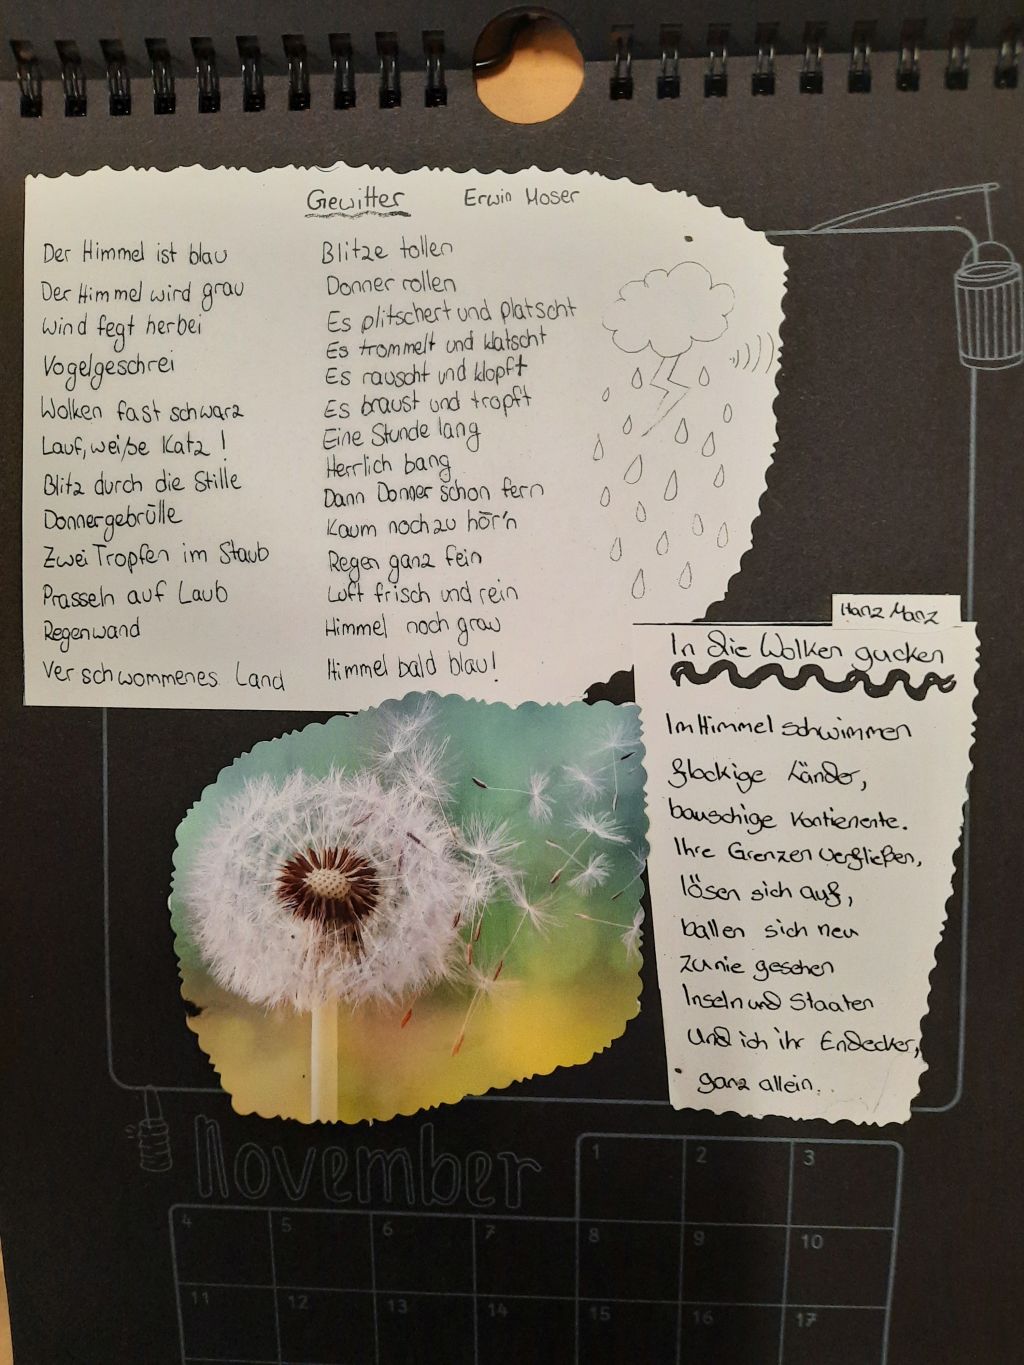 Gewitter Erwin Moser
Der Himmel ist blau
Der Himmel wird grau
Wind fegt herbei
Vogelgeschrei
Wolken fast schwarz
Lauf, weiße Katz!
Blitz durch die Stille
Donnergebrülle
Zwei Tropfen im Staub
Prasseln auf Laub
Regenwand
Verschwommenes Land
Blitze tollen
Donner rollen
Es plitschert und platscht
Es trommelt und klatscht
Es rauscht und klopft
Es braust und tropft
Eine Stunde lang
Herrlich bang
Dann Donner schon fern
Kaum noch zu hör'n
Regen ganz fein
Luft frisch und rein
Himmel noch grau
Himmel bald blau!
Hanz Manz
In die Wolken gucken
Im Himmel schwimmen
flockige Länder,
bauschige Kontienente.
Ihre Grenzen verfließen,
lösen sich auf,
ballen sich neu
zu nie gesehen
Inseln und Staaten
Und ich ihr Endecker,
ganz allein.
November
1 2 3
4 5 6 7 8 9 10
11 12 13 14 15 16 17